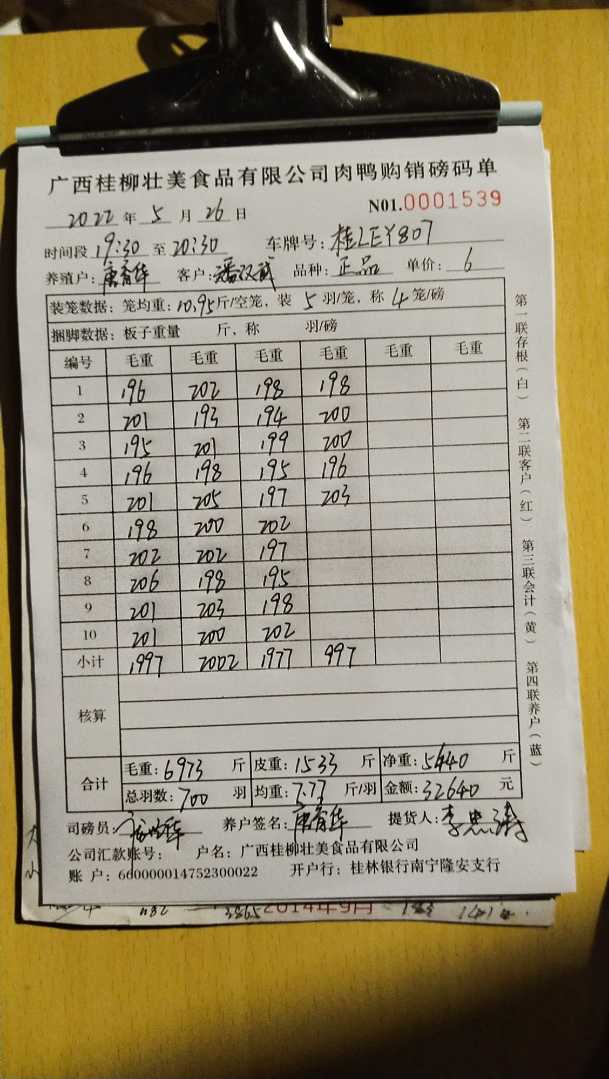 广西桂柳壮美食品有限公司肉鸭购销磅码单
2022 年 5 月 26 日 N01.0001539
时间段 19:30 至 20:30 车牌号: 桂LEY807
养殖户: 唐育华 客户: 潘汉武 品种: 正品 单价: 6
装笼数据: 笼均重: 10.95 斤/空笼, 装 5 羽/笼, 称 4 笼/磅
捆脚数据: 板子重量 斤, 称 羽/磅
编号 毛重 毛重 毛重 毛重 毛重 毛重
1 196 202 198 198
2 201 193 194 200
3 195 201 199 200
4 196 198 195 196
5 201 205 197 203
6 198 200 202
7 202 202 197
8 206 198 195
9 201 203 198
10 201 200 202
小计 1997 2002 1977 997
核算
合计 毛重: 6973 斤 皮重: 1533 斤 净重: 5440 斤
总羽数: 700 羽 均重: 7.77 斤/羽 金额: 32640 元
司磅员: 养户签名: 唐育华 提货人: 李忠
公司汇款账号: 户名: 广西桂柳壮美食品有限公司
账 户: 6d0000014752300022 开户行: 桂林银行南宁隆安支行
第一联存根(白) 第二联客户(红) 第三联会计(黄) 第四联养户(蓝)
3865 2014年9月